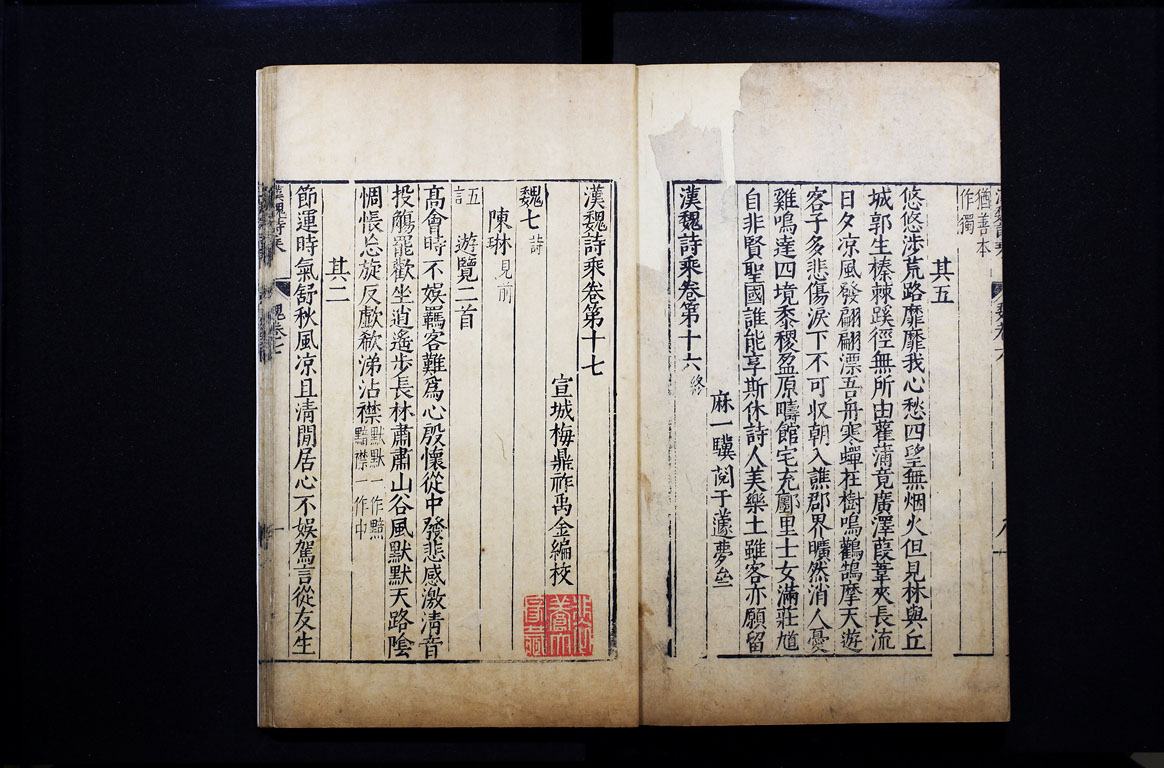 猶善本
作獨
其五
悠悠涉荒路靡靡我心愁四望無烟火但見林與丘
城郭生榛棘蹊徑無所由雚蒲竟廣澤葭葦夾長流
日夕凉風發翩翩漂吾舟寒蟬在樹鳴鸛鵠摩天遊
客子多悲傷淚下不可収朝入譙郡界曠然消人憂
雞鳴達四境黍稷盈原疇館宅充鄽里士女滿莊馗
自非賢聖國誰能享斯休詩人美樂土雖客亦願留
麻一驥閱于蘧夢亝
漢魏詩乘卷第十六終
漢魏詩乘卷第十七
宣城梅鼎祚禹金編校
魏七詩
陳琳見前
五言
遊覽二首
髙會時不娛羈客難爲心殷懷從中發悲感激清音
投觴罷歡坐逍遙步長林肅肅山谷風默默天路陰
惆悵忘旋反歔欷涕沾襟默默一作黯
黯襟一作中
其二
節運時氣舒秋風凉且清閒居心不娛駕言從友生
漢魏詩乘
魏卷七